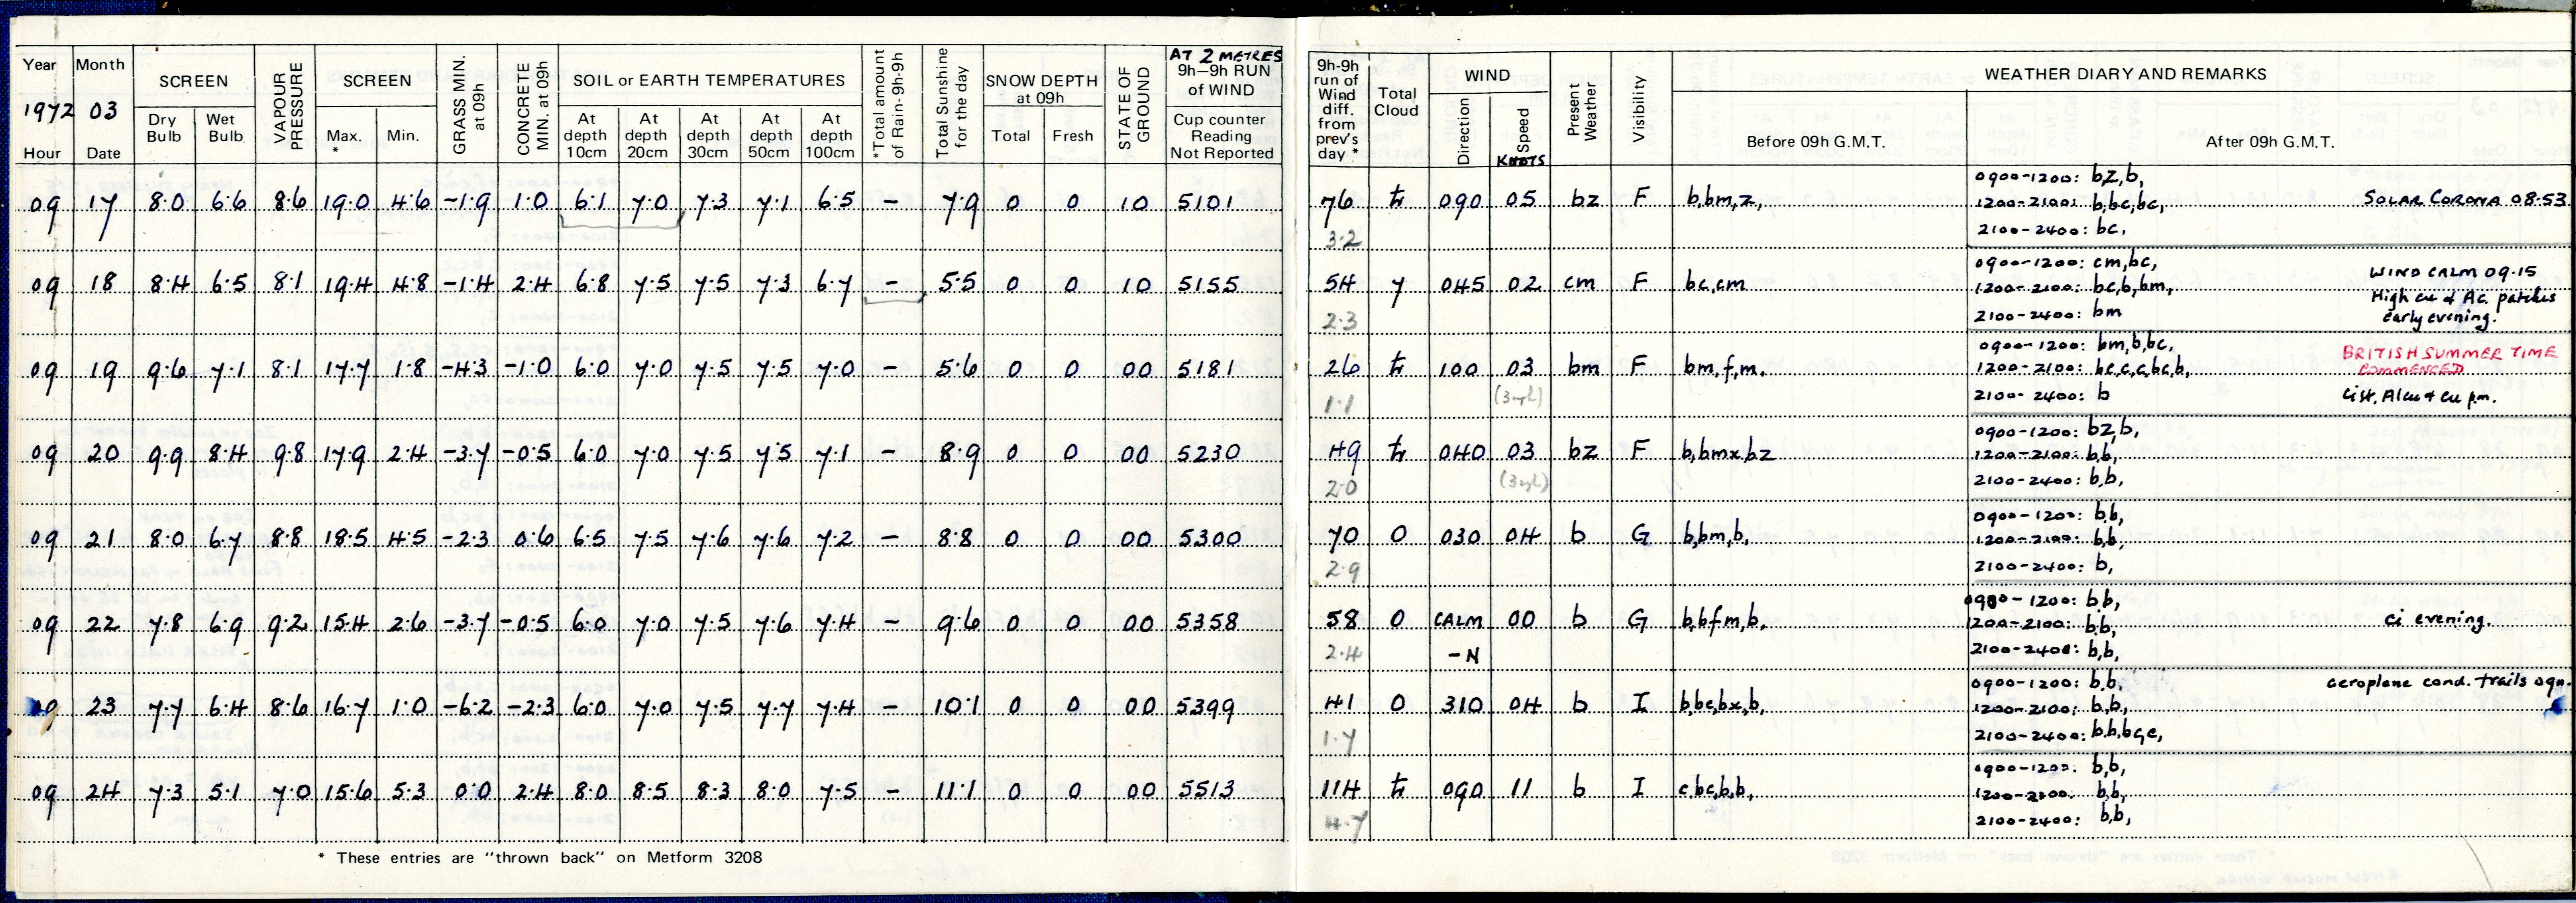 Year Month SCREEN VAPOUR PRESSURE SCREEN GRASS MIN. at 09h CONCRETE MIN. at 09h SOIL or EARTH TEMPERATURES *Total amount of Rain- 9h-9h Total Sunshine for the day SNOW DEPTH at 09h STATE OF GROUND AT 2 METRES 9h-9h RUN of WIND
1972 03 Dry Bulb Wet Bulb Max. * Min. At depth 10cm At depth 20cm At depth 30cm At depth 50cm At depth 100cm Total Fresh Cup counter Reading Not Reported
Hour Date
09 17 8.0 6.6 8.6 19.0 4.6 -1.9 1.0 6.1 7.0 7.3 7.1 6.5 - 7.9 0 0 10 5101
09 18 8.4 6.5 8.1 19.4 4.8 -1.4 2.4 6.8 7.5 7.5 7.3 6.7 - 5.5 0 0 10 5155
09 19 9.6 7.1 8.1 17.7 1.8 -4.3 -1.0 6.0 7.0 7.5 7.5 7.0 - 5.6 0 0 00 5181
09 20 9.9 8.4 9.8 17.9 2.4 -3.7 -0.5 6.0 7.0 7.5 7.5 7.1 - 8.9 0 0 00 5230
09 21 8.0 6.7 8.8 18.5 4.5 -2.3 0.6 6.5 7.5 7.6 7.6 7.2 - 8.8 0 0 00 5300
09 22 7.8 6.9 9.2 15.4 2.6 -3.7 -0.5 6.0 7.0 7.5 7.6 7.4 - 9.6 0 0 00 5358
09 23 7.7 6.4 8.6 16.7 1.0 -6.2 -2.3 6.0 7.0 7.5 7.7 7.4 - 10.1 0 0 00 5399
09 24 7.3 5.1 7.0 15.6 5.3 0.0 2.4 8.0 8.5 8.3 8.0 7.5 - 11.1 0 0 00 5513
* These entries are "thrown back" on Metform 3208
9h-9h run of Wind diff. from prev's day * Total Cloud WIND Direction Speed KNOTS Present Weather Visibility WEATHER DIARY AND REMARKS
Before 09h G.M.T. After 09h G.M.T.
0900-1200: bz, b,
76 090 05 bz F b,bm,z, 1200-2100: b,bc,bc, SOLAR CORONA 08.53.
3.2 2100-2400: bc,
0900-1200: cm,bc, WIND CALM 09.15
54 7 045 02 cm F bc,cm 1200-2100: bc,b,bm, High cu & Ac. patches
2.3 2100-2400: bm early evening.
0900-1200: bm,b,bc, BRITISH SUMMER TIME
26 100 03 bm F bm,f,m. 1200-2100: bc,c,c,bc,b, COMMENCED
1.1 (3mph) 2100-2400: b cist, Alcu & cu p.m.
0900-1200: bz,b,
49 040 03 bz F b,bmx,bz 1200-2100: b,b,
2.0 (3mph) 2100-2400: b,b,
0900-1200: b,b,
70 0 030 04 b G b,bm,b, 1200-2100: b,b,
2.9 2100-2400: b,
0900-1200: b,b,
58 0 CALM 00 b G b,bfm,b, 1200-2100: b,b, ci evening.
2.4 -N 2100-2400: b,b,
0900-1200: b,b, aeroplane cond. trails 09h.
41 0 310 04 b I b,bc,bx,b, 1200-2100: b,b,
1.7 2100-2400: b,b,bc,c,
0900-1200: b,b,
114 090 11 b I c,bc,b,b, 1200-2100: b,b,
4.7 2100-2400: b,b,